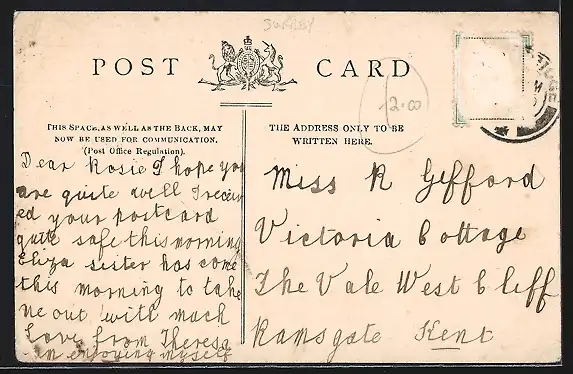 POST CARD
12.00
THIS SPACE, AS WELL AS THE BACK, MAY
NOW BE USED FOR COMMUNICATION.
(Post Office Regulation).
Dear Rosie I hope you
are quite well I receiv
ed your postcard
quite safe this morning
Eliza sister has come
this morning to take
me out with much
love from Theresa
am enjoying myself
THE ADDRESS ONLY TO BE
WRITTEN HERE.
Miss R Gefford
Victoria Cottage
The Vale West Cliff
Ramsgate Kent